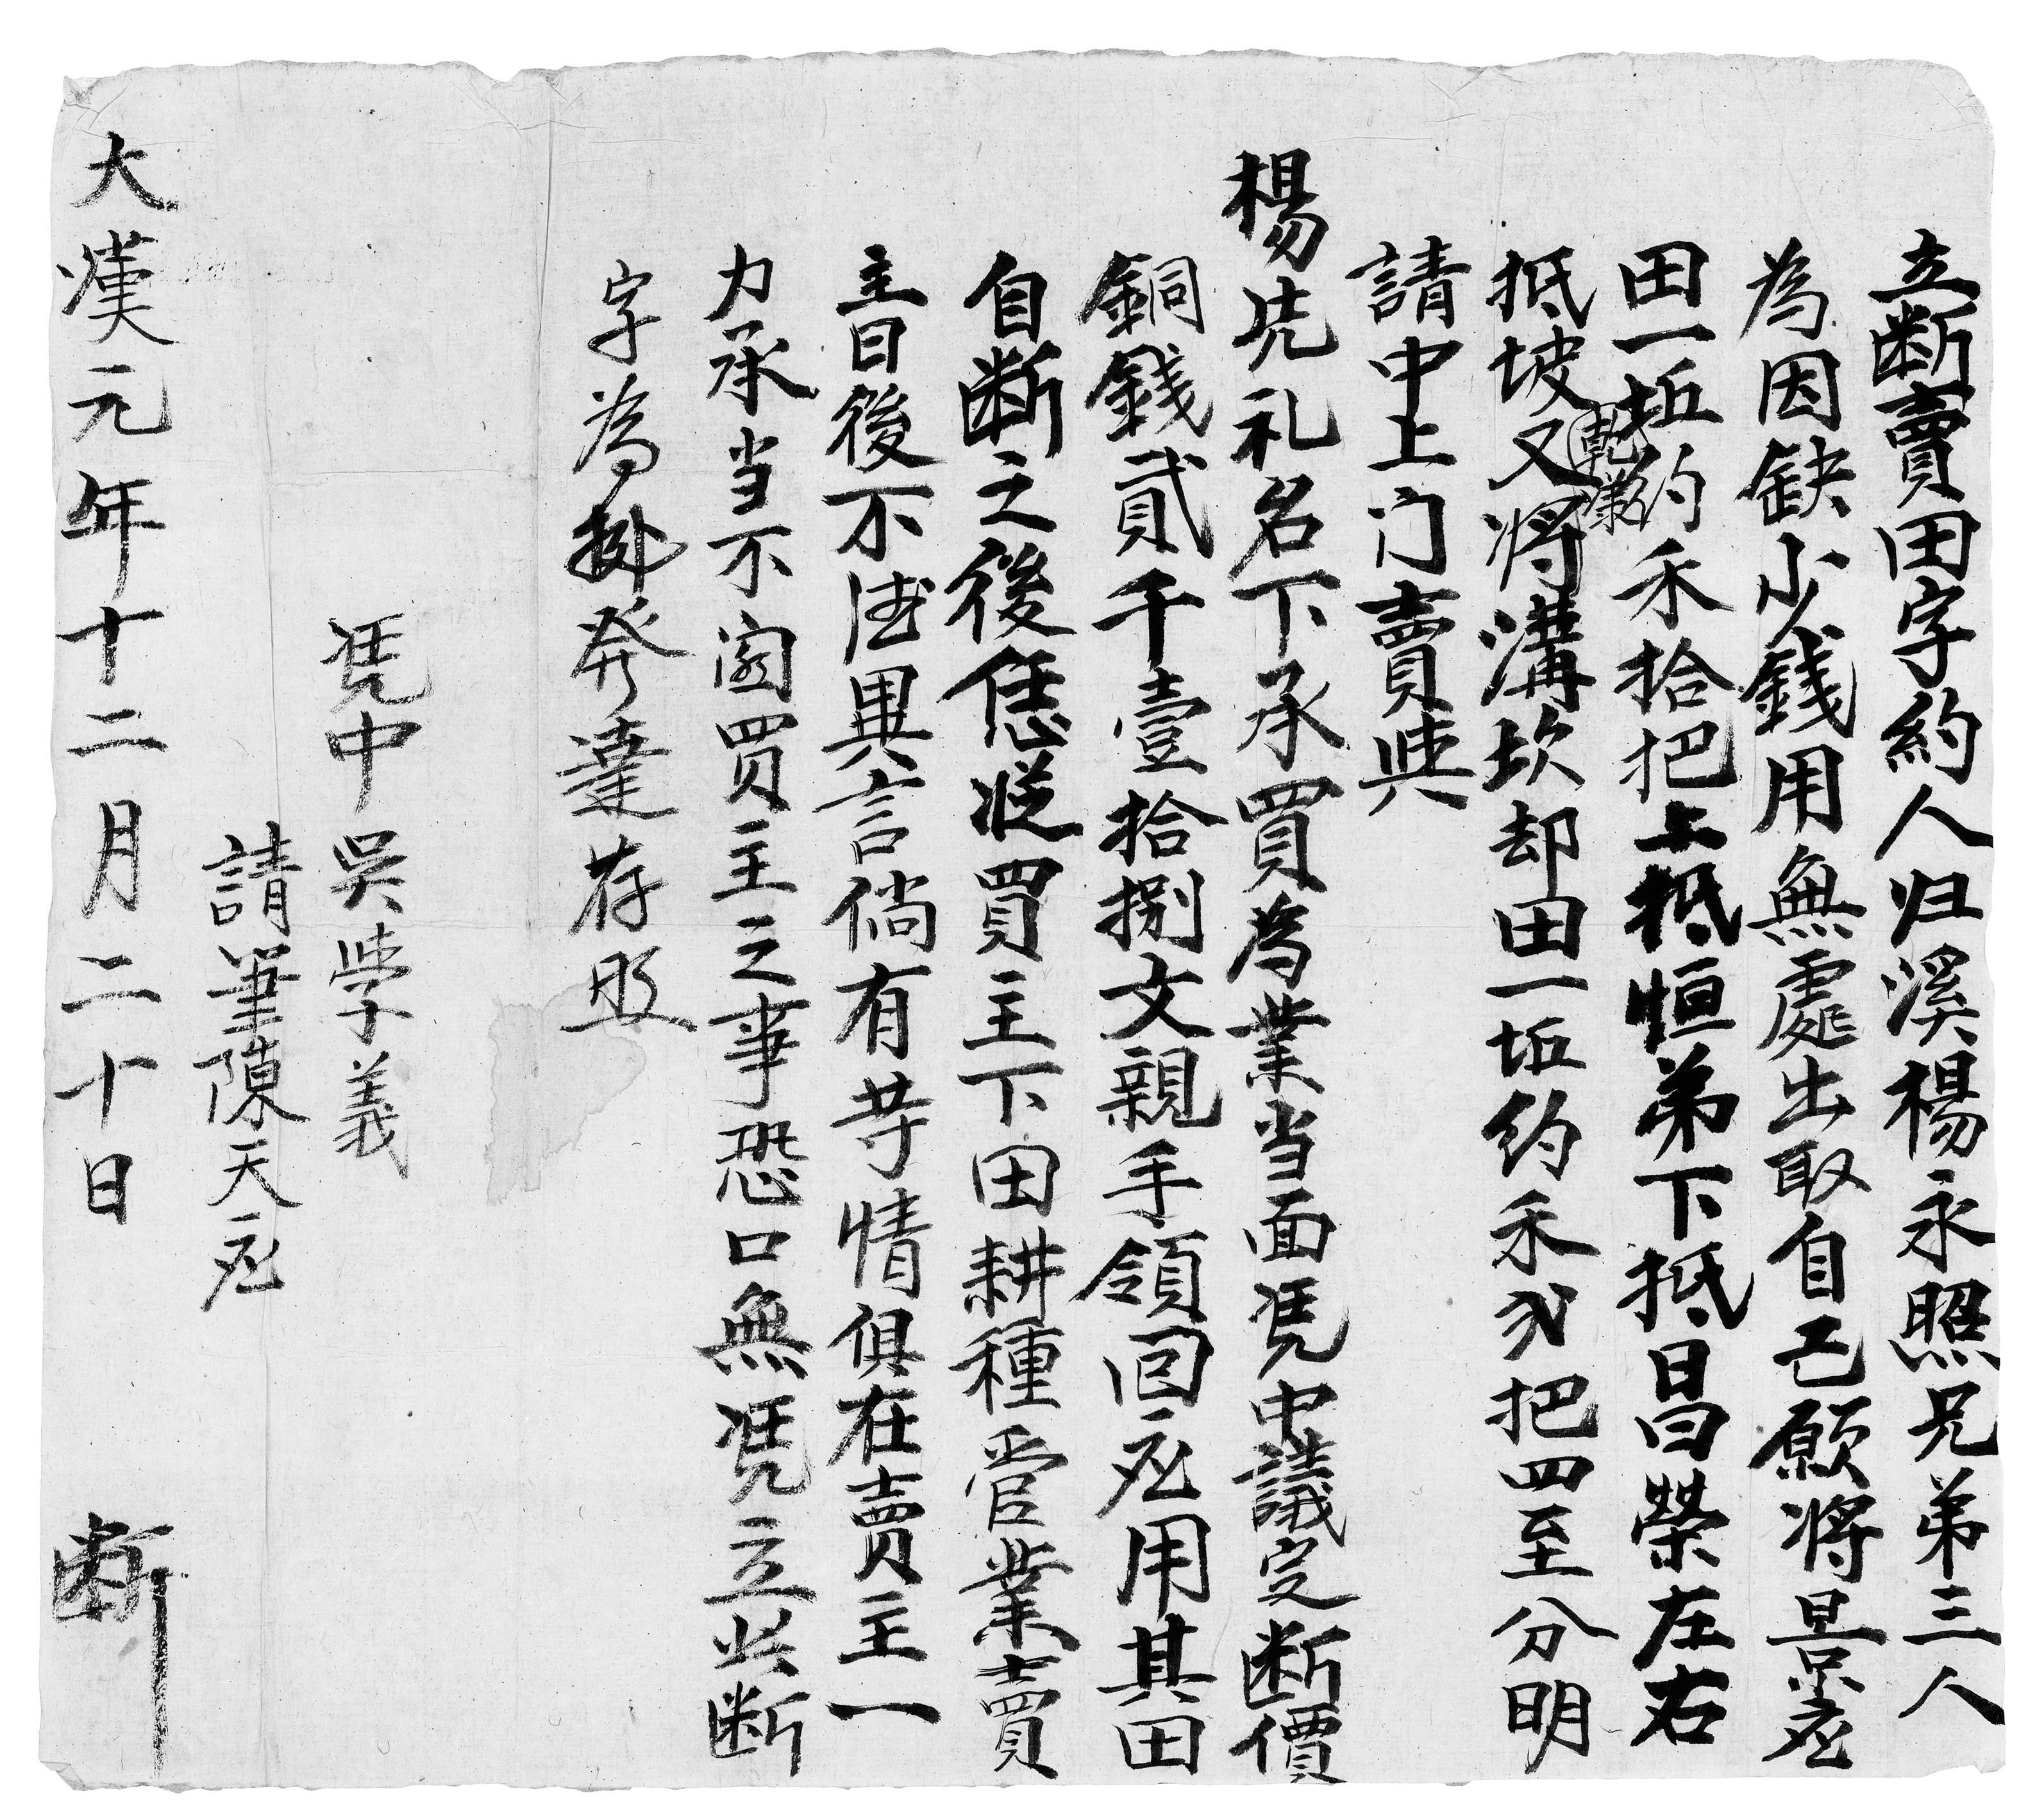 立断賣田字約人归溪楊永照兄弟三人
為因缺少錢用無處出取自己願将景应
田一坵約禾拾把上抵恒弟下抵昌榮左右
乾溝
抵坡又将溝坎却田一坵约禾弍把四至分明
請中上门賣與
楊先礼名下承買為業当面凭中議定断價
銅錢貳千壹拾捌文親手領回应用其田
自断之後恁從買主下田耕種管業賣
主日後不得異言倘有等情俱在賣主一
力承当不関買主之事恐口無凭立此断
字為掛發達存照
凭中吳学義
請筆陳天应
大漢元年十二月二十日 断